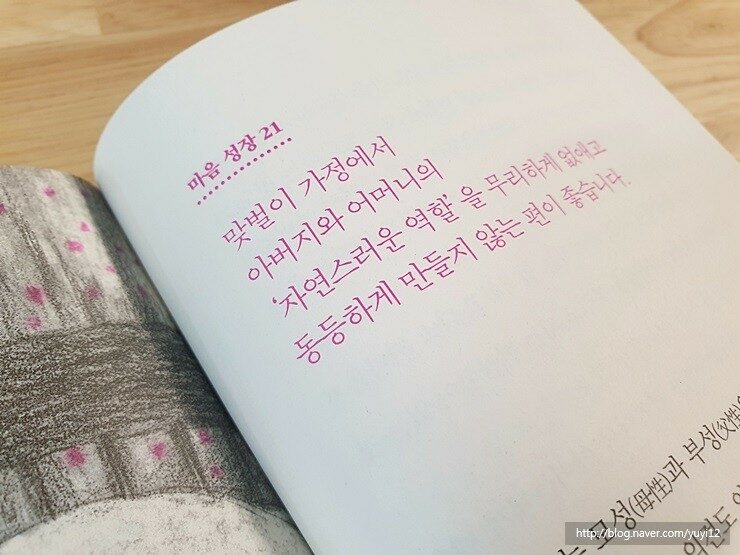 마음 성장 21
맞벌이 가정에서
아버지와 어머니의
‘자연스러운 역할’을 무리하게 없애고
동등하게 만들지 않는 편이 좋습니다.
는 모성(母性)과 부성(父性)
http://blog.naver.com/yuyi12